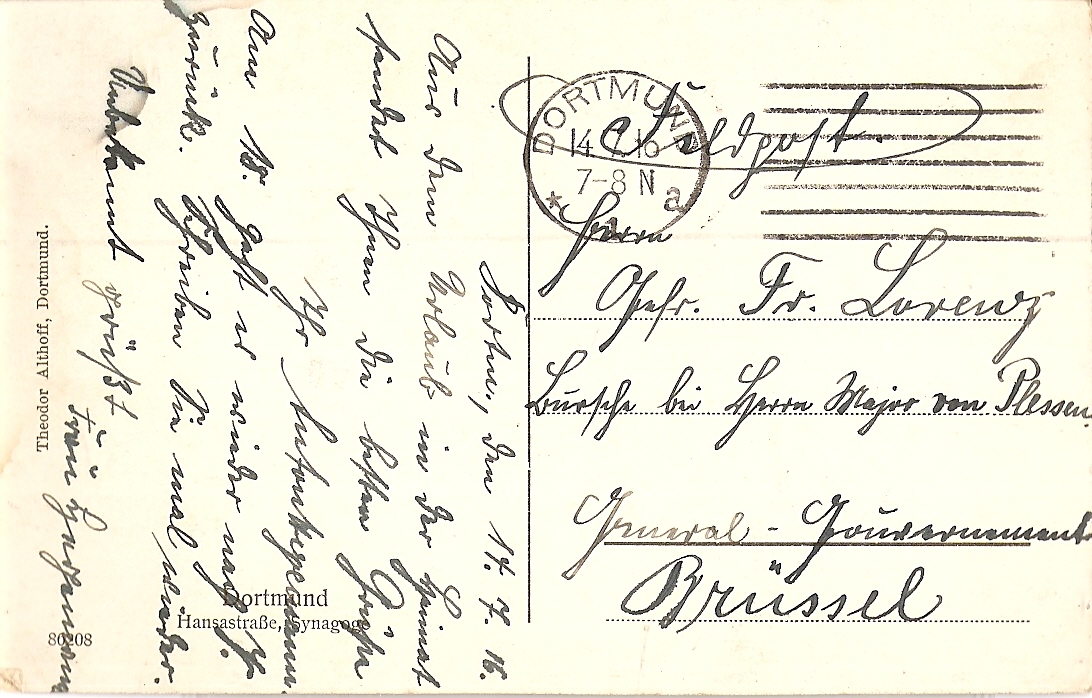 Dortm., den 14. 7. 16.
Aus dem Urlaub in der Heimat
sendet Ihnen die besten Grüße
Ihr
Am 18. geht es wieder nach
zurück. Schreiben Sie mal wieder.
Unbekannt grüßt
Frau
Theodor Althoff, Dortmund.
Dortmund
Hansastraße, Synagoge
80208
DORTMUND
14.7.16
7-8 N
* a
Feldpost.
Herrn
Gefr. Fr. Lorenz
Bursche bei Herrn Major von Plessen
General-Gouvernement
Brüssel